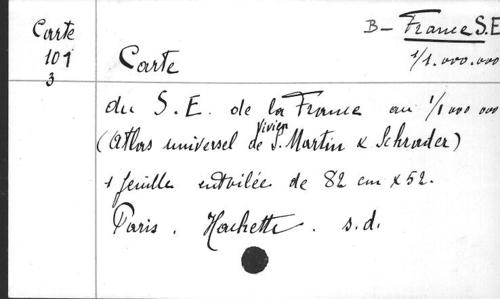 Carte
101
3
B - France S.E
1/1.000.000
Carte
du S. E. de la France au 1/1 000 000
(Atlas universel de Vivien S. Martin & Schrader)
1 feuille entoilée de 82 cm x 52.
Paris. Hachette. s.d.